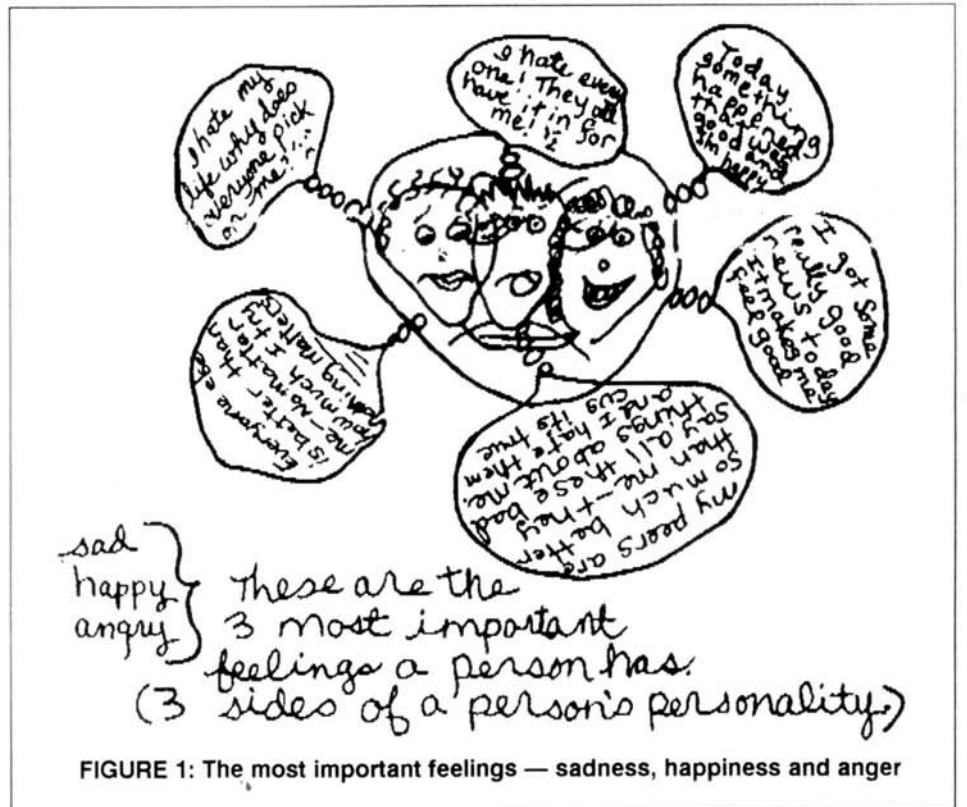 I hate my
life why does
everyone pick
on me?!
I hate every
one! They all
have it in for
me!
Today
something
happened
that was
good and
I'm happy
I got some
really good
news today
It makes me
feel good
Everyone else
is better than
me - No matter
how much I try
nothing matters
my peers are
so much better
than me - they
say all these bad
things about me.
and I hate them
cus its true
sad
happy
angry
These are the
3 most important
feelings a person has.
(3 sides of a person's personality.)
FIGURE 1: The most important feelings — sadness, happiness and anger